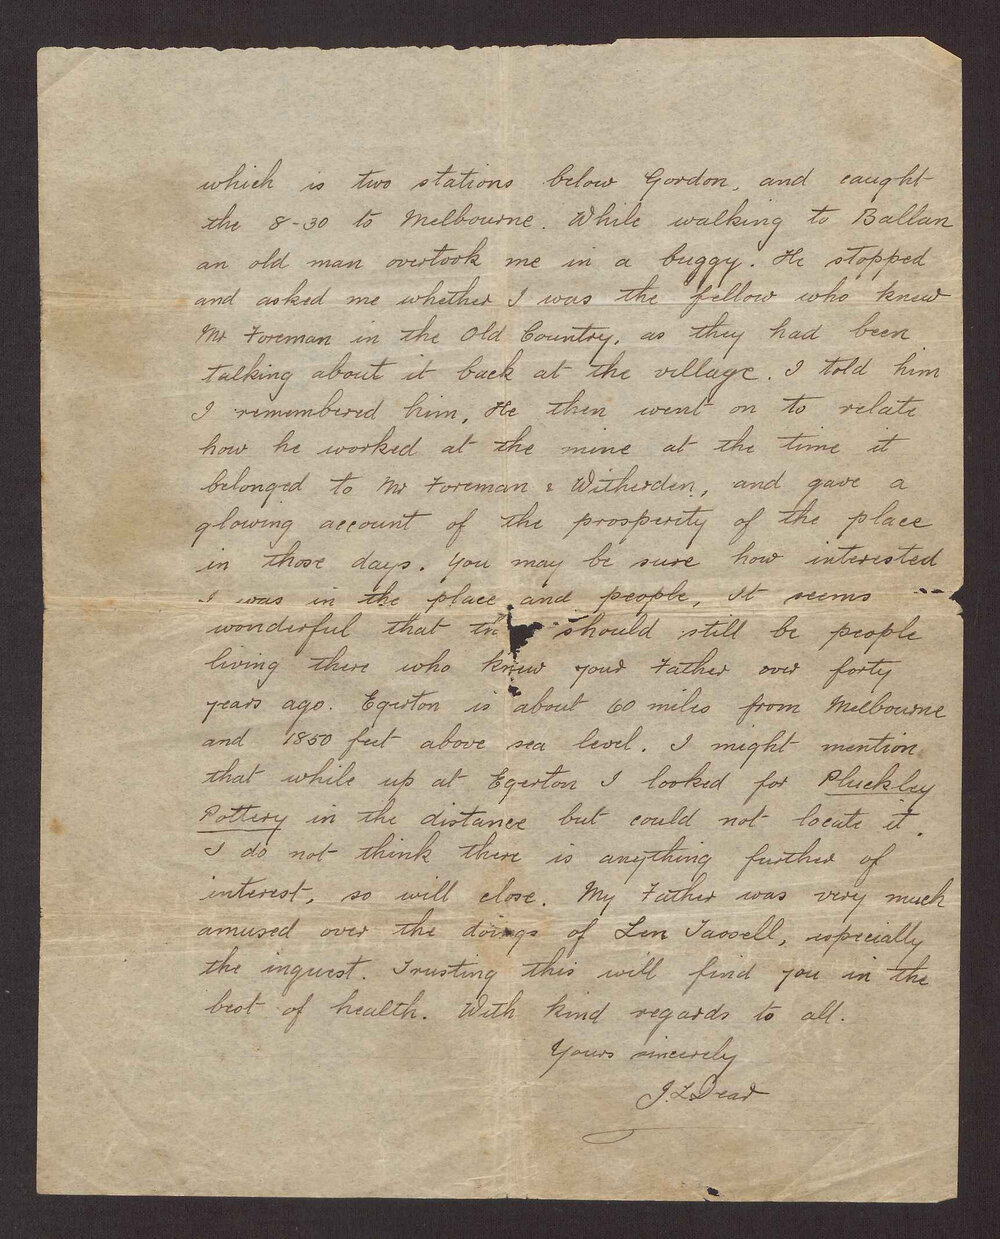 which is two stations below Gordon, and caught
the 8-30 to Melbourne. While walking to Ballan
an old man overtook me in a buggy. He stopped
and asked me whether I was the fellow who knew
Mr Foreman in the Old Country, as they had been
talking about it back at the village. I told him
I remembered him, He then went on to relate
how he worked at the mine at the time it
belonged to Mr Foreman & Witherden, and gave a
glowing account of the prosperity of the place
in those days. You may be sure how interested
I was in the place and people, It seems
wonderful that should still be people
living there who knew your Father over forty
years ago. Egerton is about 60 miles from Melbourne
and 1850 feet above sea level. I might mention
that while up at Egerton I looked for Pluckley
Pottery in the distance but could not locate it.
I do not think there is anything further of
interest, so will close. My Father was very much
amused over the doings of Len Tassell, especially
the inquest. Trusting this will find you in the
best of health. With kind regards to all.
Yours sincerely